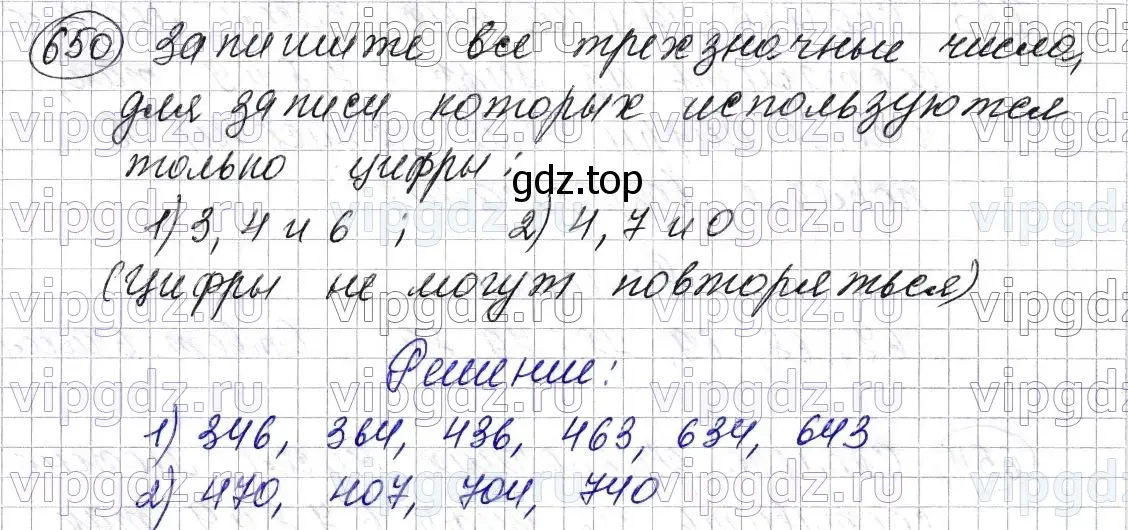 650 Запишите все трехзначные числа,
для записи которых используются
только цифры:
gdz.top
1) 3, 4 и 6 ; 2) 4, 7 и 0
(Цифры не могут повторяться)
Решение:
1) 346, 364, 436, 463, 634, 643
2) 470, 407, 704, 740
vipgdz.ru